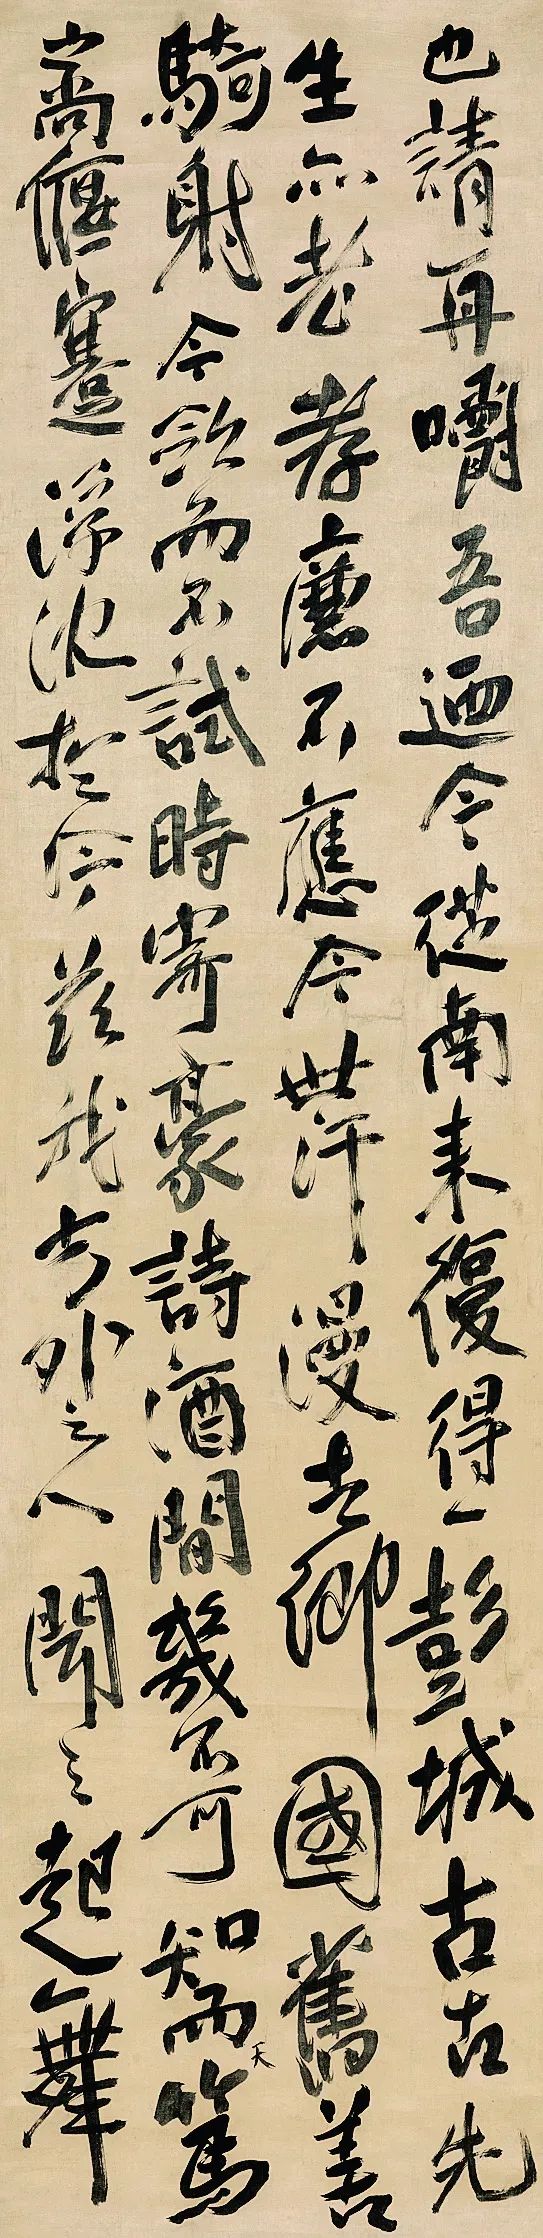 也請再嚼吾迺今從南來復得一彭城古古先
生亦老孝廉不應今世汗漫去鄉國舊善
騎射今斂而不試時寄豪詩酒間幾不可知而天篤
偃蹇浮沈於今茲我方外之人聞之起舞